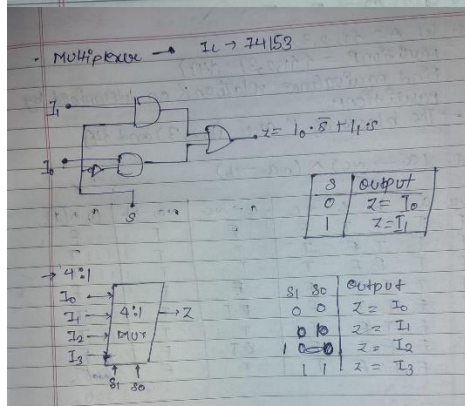 . Multiplexer → IC → 74153
I₁
I₀
Z = I₀ · s̅ + I₁ · s
S
S Output
0 Z = I₀
1 Z = I₁
→ 4:1
I₀
I₁
I₂
I₃
4:1
MUX
→ Z
S1 S0
S1 S0 Output
0 0 Z = I₀
0 1 Z = I₁
1 0 Z = I₂
1 1 Z = I₃